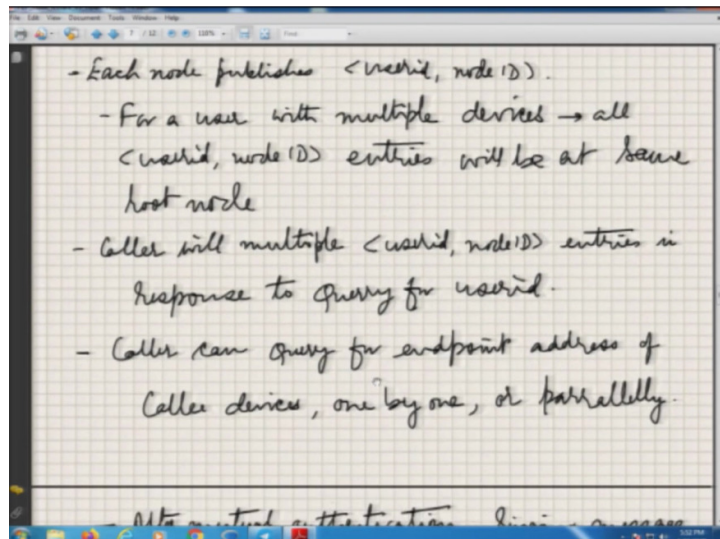 File Edit View Document Tools Window Help
7 / 12 118% Find
- Each node publishes <userid, node ID>.
- For a user with multiple devices → all
<userid, node ID> entries will be at same
root node
- Caller will multiple <userid, node ID> entries in
response to query for userid.
- Caller can query for endpoint address of
Callee devices, one by one, or parrallelly.
- After mutual authentication,
5:02 PM